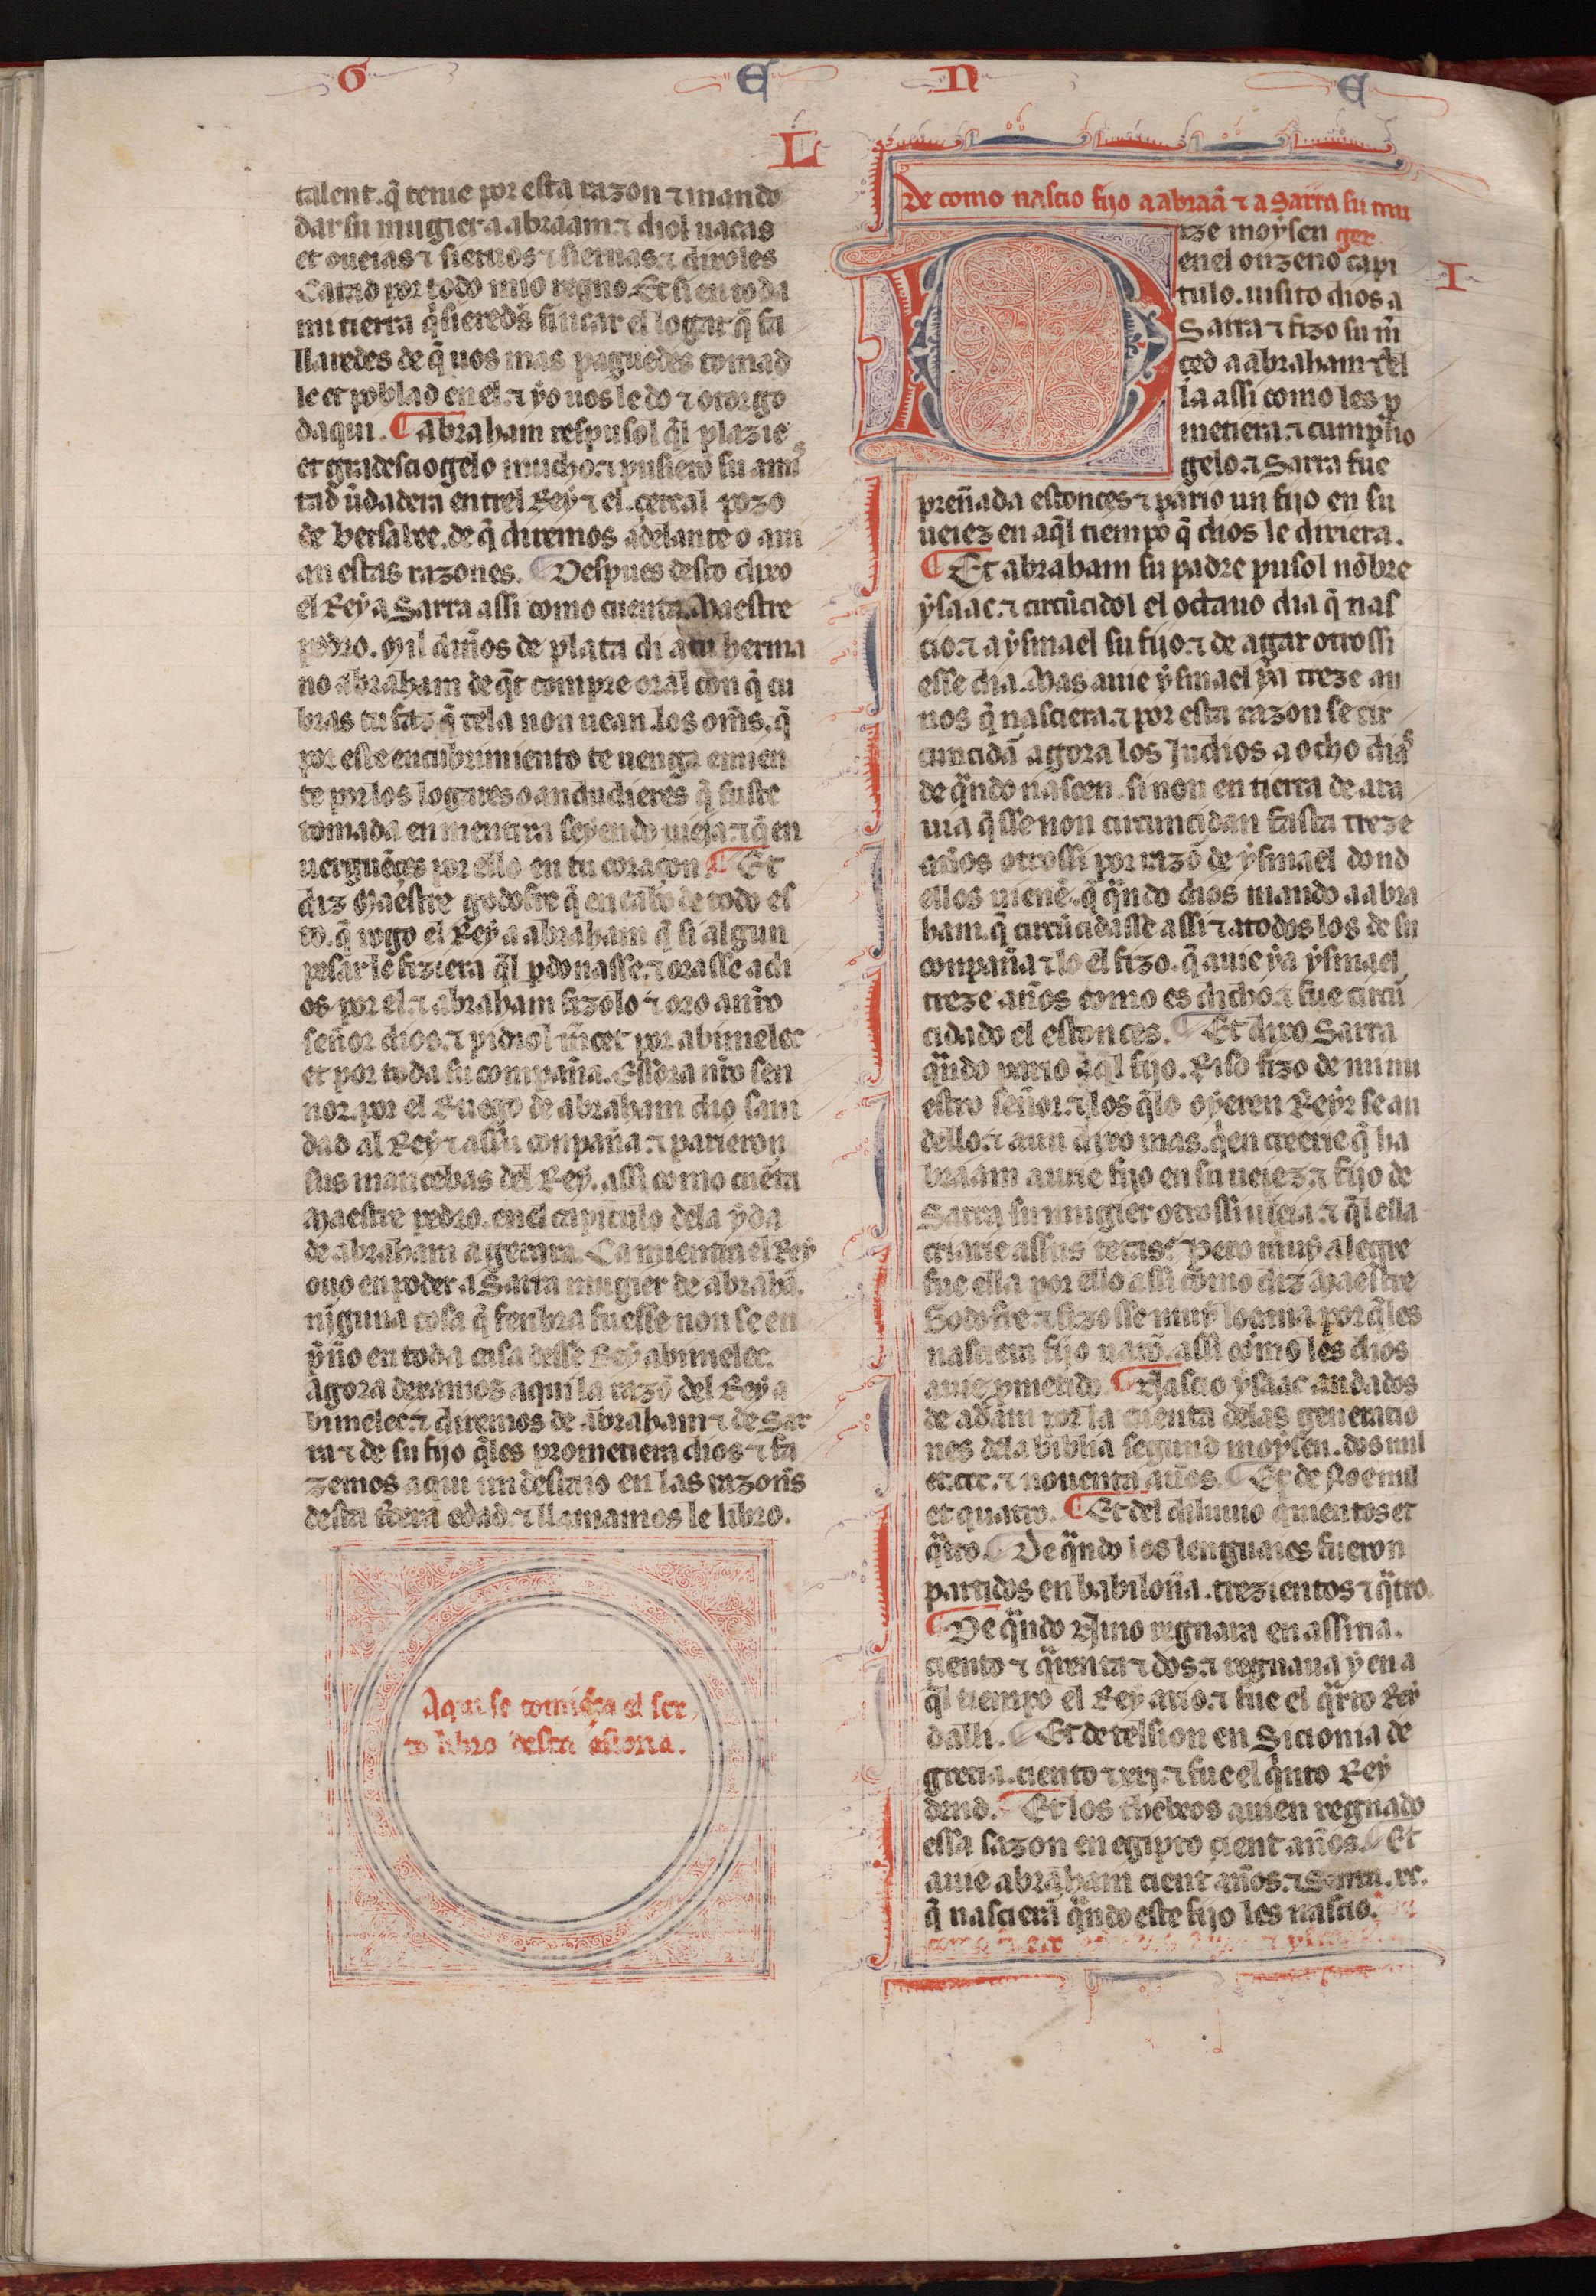 G E N E
L
talent. q̃ tenie por esta razon ⁊ mando
dar su mugier a abraam ⁊ diol uacas
et oueias ⁊ sieruos ⁊ sieruas ⁊ dixoles
Catad por todo mio regno. Et si en toda
mi tierra q̃sieredes fincar el logar q̃ fa
llaredes de q̃ uos mas paguedes tomad
le et poblad en el ⁊ yo uos le do ⁊ otorgo
daqui. ¶ abraham respusol q̃l plazie
et gradesciogelo mucho. ⁊ pusiero su amis
tad ũdadera entrel Rey ⁊ el. cercal pozo
de bersabee. de q̃ diremos adelante o aui
an estas razones. ¶ Despues desto dixo
el Rey a Sarra assi como cuenta Maestre
pedro. Mil diños de plata di a tu herma
no abraham de q̃t compre oral con q̃ cu
bras tu faz q̃ tela non uean los om̃s. q̃
por este encubrimiento te uenga emien
te por los logares o andudieres q̃ fuste
tomada en mentira seyendo uieia. ⁊ q̃ en
uerguẽces por ello en tu coraçon ¶ Et
diz Maestre godofre q̃ en cabo de todo es
to. q̃ rogo el Rey a abraham q̃ si algun
pesar le fiziera q̃l ꝑdonasse. ⁊ orasse a di
os por el. ⁊ abraham fizolo ⁊ oro a nr̃o
señor dios. ⁊ pidiol m̃cet por abimelec
et por toda su compaña. Essora nr̃o sen
nor. por el Ruego de abraham dio sani
dad al Rey ⁊ assu conpaña. ⁊ parieron
sus mancebas del Rey. assi como cuẽta
Maestre pedro. en el capitulo dela yda
de abraham a gerara. Ca mientra el Rey
ouo en poder a Sarra mugier de abrahã.
nĩguna cosa q̃ fenbra fuesse non se en
p̃ño en toda casa desse Rey abimelec.
Agora dexamos aqui la razõ del Rey a
bimelec. ⁊ diremos de abraham ⁊ de Sar
ra ⁊ de su fijo q̃les prometiera dios ⁊ fa
zemos aqui un desitio en las razoñs
desta t̃cera edad. ⁊ llamamos le libro.
Aqui se comiẽça el sex
to libro desta estoria.
De como nascio fijo a abraã ⁊ a Sarra su mu
ger
I
Dize moysen
en el onzeno capi
tulo. uisito dios a
Sarra ⁊ fizo su m̃
ced a abraham ⁊ del
la assi como les p
metiera. ⁊ cumplio
gelo. ⁊ Sarra fue
preñada estonces ⁊ pario un fijo en su
ueiez en aq̃l tiempo q̃ dios le dixiera.
¶ Et abraham su padre pusol nõbre
ysaac. ⁊ circũcidol el octauo dia q̃ nas
cio. ⁊ a ysmael su fijo. ⁊ de agar otrossi
esse dia. Mas auie ysmael ya treze an
nos q̃ nasciera. ⁊ por esta razon se cir
cuncidã agora los Judios a ocho dias
de q̃ndo nascen. si non en tierra de ara
uia q̃ sse non circuncidan fasta treze
años otrossi por razõ de ysmael dond
ellos uienẽ. q̃ q̃ndo dios mando a abra
ham. q̃ circũcidasse assi ⁊ a todos los de su
conpaña ⁊ lo el fizo. q̃ auie ya ysmael
treze años como es dicho. ⁊ fue circũ
cidado el estonces. ¶ Et dixo Sarra
q̃ndo pario aq̃l fijo. Riso fizo de mi nu
estro señor. ⁊ los q̃lo oyeren Reyr se an
dello. ⁊ aun dixo mas. q̃en creerie q̃ ha
braam aurie fijo en su ueiez. ⁊ fijo de
Sarra su mugier otrossi uieia. ⁊ q̃l ella
criarie assus tetas. Pero muy alegre
fue ella por ello assi como diz Maestre
Godofre. ⁊ fizosse muy loçana por q̃les
nasciera fijo uarõ. assi como les dios
auie ꝓmetido. ¶ Nascio ysaac andados
de adam por la cuenta delas generatio
nes dela biblia segund moysen. dos mil
et. cc. ⁊ nouenta años. ¶ Et de noe mil
et quatro. ¶ Et del diluuio q̃nientos et
q̃tro. ¶ De q̃ndo los lenguaies fueron
partidos en babiloña. trezientos ⁊ q̃tro.
¶ De q̃ndo Nino regnara en assiria.
ciento ⁊ q̃renta ⁊ dos. ⁊ regnaua y en a
q̃l tiempo el Rey ario. ⁊ fue el q̃rto Rey
dalli. ¶ Et de telsion en Sicionia de
grecia. ciento ⁊ xxj. ⁊ fue el q̃nto Rey
dend. ¶ Et los thebeos auien regnado
essa sazon en egipto cient años. ¶ Et
auie abraham cient años. ⁊ Sarra. xc.
q̃ nascierã q̃ndo este fijo les nascio.